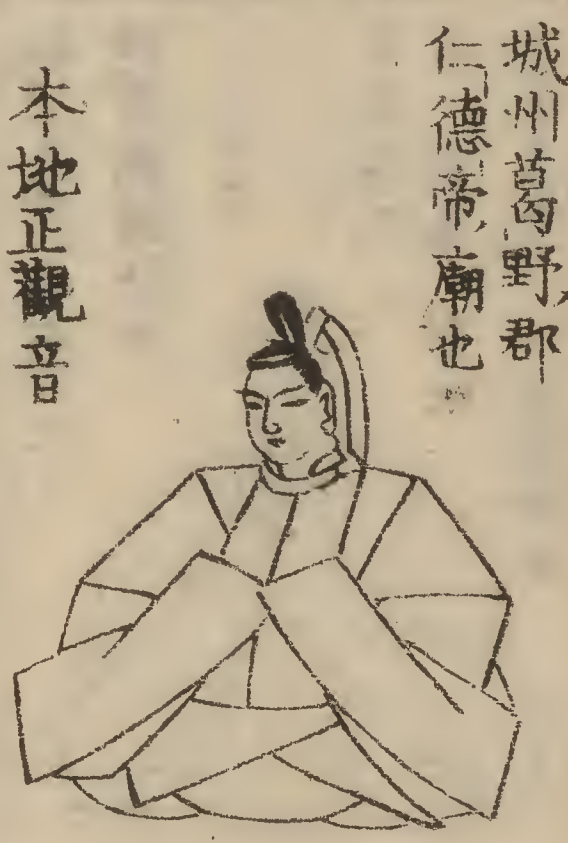 城州葛野郡
仁德帝廟也
本地正觀音